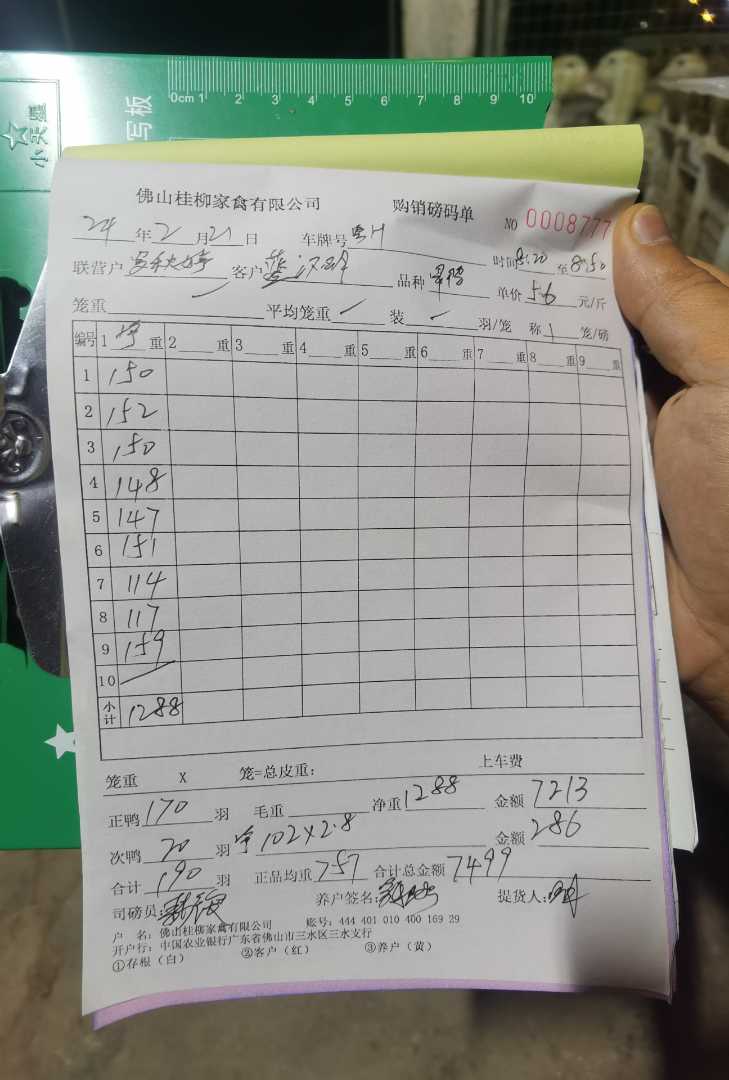 小天星
写板
0cm 1 2 3 4 5 6 7 8 9 10
佛山桂柳家禽有限公司 购销磅码单 NO 0008777
24 年 2 月 21 日 车牌号 时间 8:20 至 8:50
联营户 客户 品种 单价 5.6 元/斤
笼重 平均笼重 装 羽/笼 称 1 笼/磅
编号 1 净 重 2 重 3 重 4 重 5 重 6 重 7 重 8 重 9 重
1 150
2 152
3 150
4 148
5 147
6 151
7 114
8 117
9 159
10
小计 1288
笼重 X 笼=总皮重： 上车费
正鸭 170 羽 毛重 净重 1288 金额 7213
次鸭 20 羽 净 102×2.8 金额 286
合计 190 羽 正品均重 7.57 合计总金额 7499
司磅员： 养户签名： 提货人：
户 名：佛山桂柳家禽有限公司 账号：444 401 010 400 169 29
开户行：中国农业银行广东省佛山市三水区三水支行
①存根（白） ②客户（红） ③养户（黄）